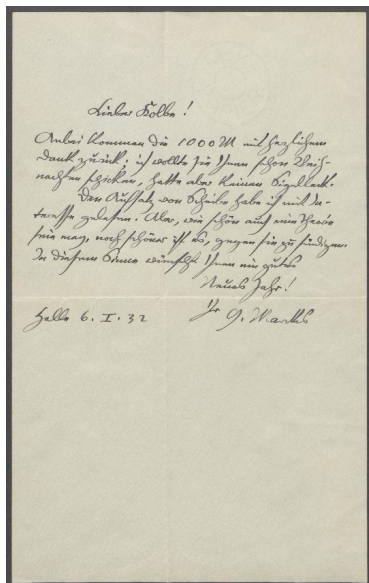 Lieber Kolbe!
Anbei kommen die 1000 M mit herzlichem
Dank zurück; ich wollte sie Ihnen schon Weih-
nachten schicken, hatte aber keinen Siegellack.
Den Aufsatz von Scheibe habe ich mit In-
teresse gelesen. Aber, wie schön auch eine Theorie
sein mag, noch schöner ist es, gegen sie zu sündigen.
In diesem Sinne wünscht Ihnen ein gutes
Neues Jahr!
Ihr G. Marcks
Halle 6. I. 32